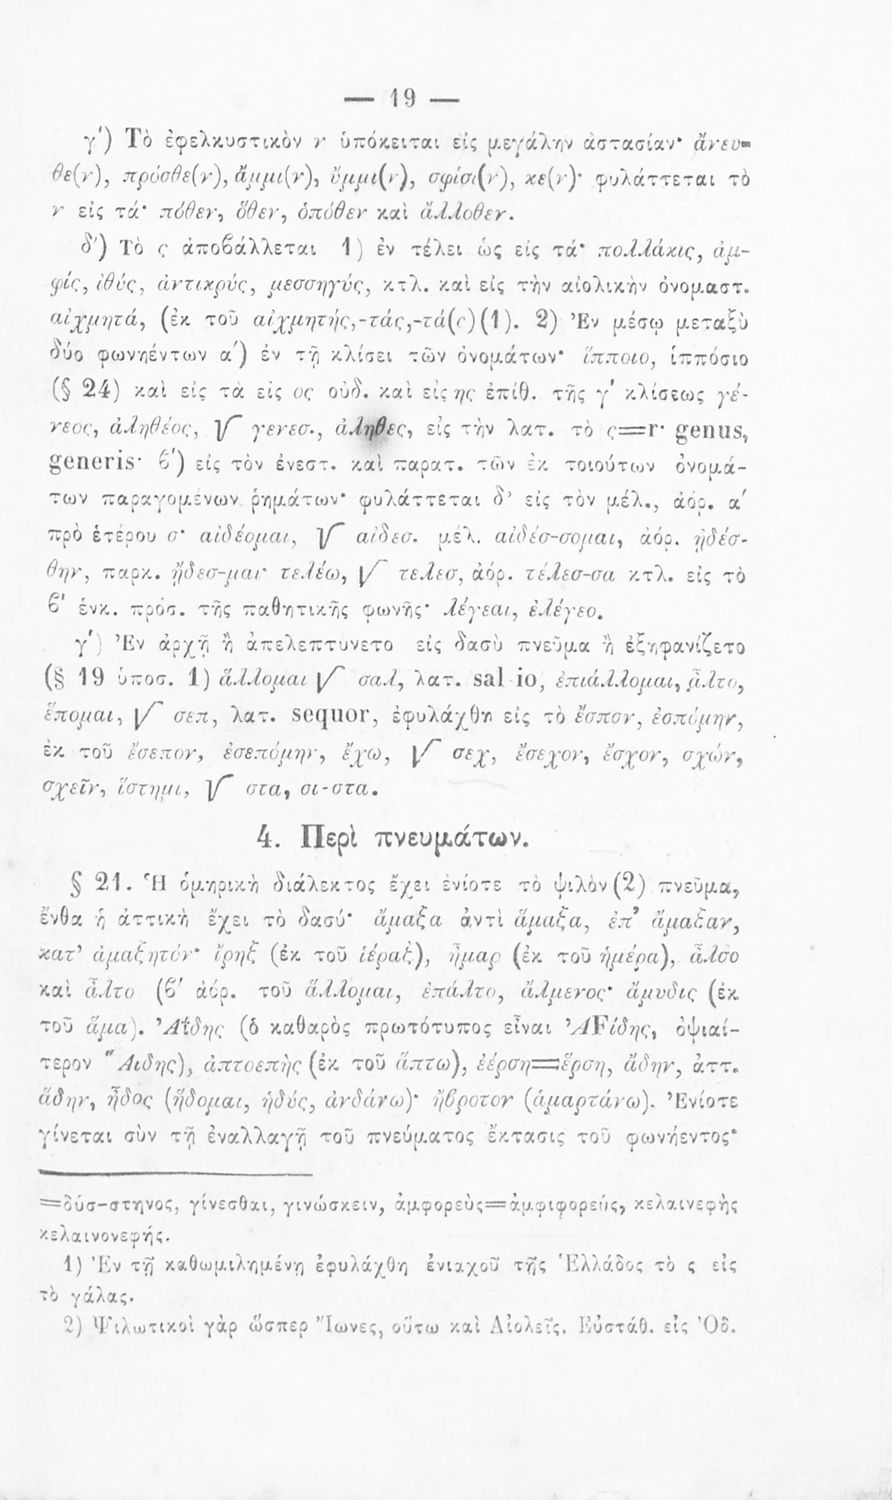 — 19 —
γ') Τὸ ἐφελκυστικὸν ν ὑπόκειται εἰς μεγάλην ἀστασίαν· ἄνευ-
θε(ν), πρόσθε(ν), ἄμμι(ν), ὔμμι(ν), σφίσι(ν), κε(ν)· φυλάττεται τὸ
ν εἰς τά· πόθεν, ὅθεν, ὁπόθεν καὶ ἄλλοθεν.
δ') Τὸ ς ἀποβάλλεται 1) ἐν τέλει ὡς εἰς τά· πολλάκις, ἀμ-
φίς, ἰθύς, ἀντικρύς, μεσσηγύς, κτλ. καὶ εἰς τὴν αἰολικὴν ὀνομαστ.
αἰχμητά, (ἐκ τοῦ αἰχμητής,-τάς,-τά(ς)(1). 2) Ἐν μέσῳ μεταξὺ
δύο φωνηέντων α') ἐν τῇ κλίσει τῶν ὀνομάτων· ἵπποιο, ἱππόσιο
(§ 24) καὶ εἰς τὰ εἰς ος οὐδ. καὶ εἰς ης ἐπίθ. τῆς γ' κλίσεως γέ-
νεος, ἀληθέος, √ γενεσ., ἀληθες, εἰς τὴν λατ. τὸ ς=r· genus,
generis· β') εἰς τὸν ἐνεστ. καὶ παρατ. τῶν ἐκ τοιούτων ὀνομά-
των παραγομένων ῥημάτων· φυλάττεται δ' εἰς τὸν μέλ., ἀόρ. α'
πρὸ ἑτέρου σ· αἰδέομαι, √ αἰδεσ. μέλ. αἰδέσ-σομαι, ἀόρ. ᾐδέσ-
θην, παρκ. ᾔδεσ-μαι· τελέω, √ τελεσ, ἀόρ. τέλεσ-σα κτλ. εἰς τὸ
β' ἑνκ. πρόσ. τῆς παθητικῆς φωνῆς· λέγεαι, ἐλέγεο.
γ') Ἐν ἀρχῇ ἢ ἀπελεπτύνετο εἰς δασὺ πνεῦμα ἢ ἐξηφανίζετο
(§ 19 ὑποσ. 1) ἅλλομαι √ σαλ, λατ. sal io, ἐπιάλλομαι, ἆλτο,
ἕπομαι, √ σεπ, λατ. sequor, ἐφυλάχθη εἰς τὸ ἕσπον, ἑσπόμην,
ἐκ τοῦ ἔσεπον, ἐσεπόμην, ἔχω, √ σεχ, ἔσεχον, ἔσχον, σχών,
σχεῖν, ἵστημι, √ στα, σι-στα.
4. Περὶ πνευμάτων.
§ 21. Ἡ ὁμηρικὴ διάλεκτος ἔχει ἐνίοτε τὸ ψιλὸν(2) πνεῦμα,
ἔνθα ἡ ἀττικὴ ἔχει τὸ δασύ· ἄμαξα ἀντὶ ἅμαξα, ἐπ' ἄμαξαν,
κατ' ἀμαξητόν· ἴρηξ (ἐκ τοῦ ἱέραξ), ἦμαρ (ἐκ τοῦ ἡμέρα), ἆλσο
καὶ ἆλτο (β' ἀόρ. τοῦ ἅλλομαι, ἐπάλτο, ἄλμενος· ἄμυδις (ἐκ
τοῦ ἅμα). Ἀΐδης (ὁ καθαρὸς πρωτότυπος εἶναι ἈϜίδης, ὀψιαί-
τερον Ἅιδης), ἀπτοεπὴς (ἐκ τοῦ ἅπτω), ἐέρση=ἕρση, ἄδην, ἀττ.
ἅδην, ἦδος (ἥδομαι, ἡδύς, ἁνδάνω)· ἤβροτον (ἁμαρτάνω). Ἐνίοτε
γίνεται σὺν τῇ ἐναλλαγῇ τοῦ πνεύματος ἔκτασις τοῦ φωνήεντος·
=δύσ-στηνος, γίνεσθαι, γινώσκειν, ἀμφορεὺς=ἀμφιφορεύς, κελαινεφὴς
κελαινονεφής.
1) Ἐν τῇ καθωμιλημένῃ ἐφυλάχθη ἐνιαχοῦ τῆς Ἑλλάδος τὸ ς εἰς
τὸ γάλας.
2) Ψιλωτικοὶ γὰρ ὥσπερ Ἴωνες, οὕτω καὶ Αἰολεῖς. Εὐστάθ. εἰς Ὀδ.